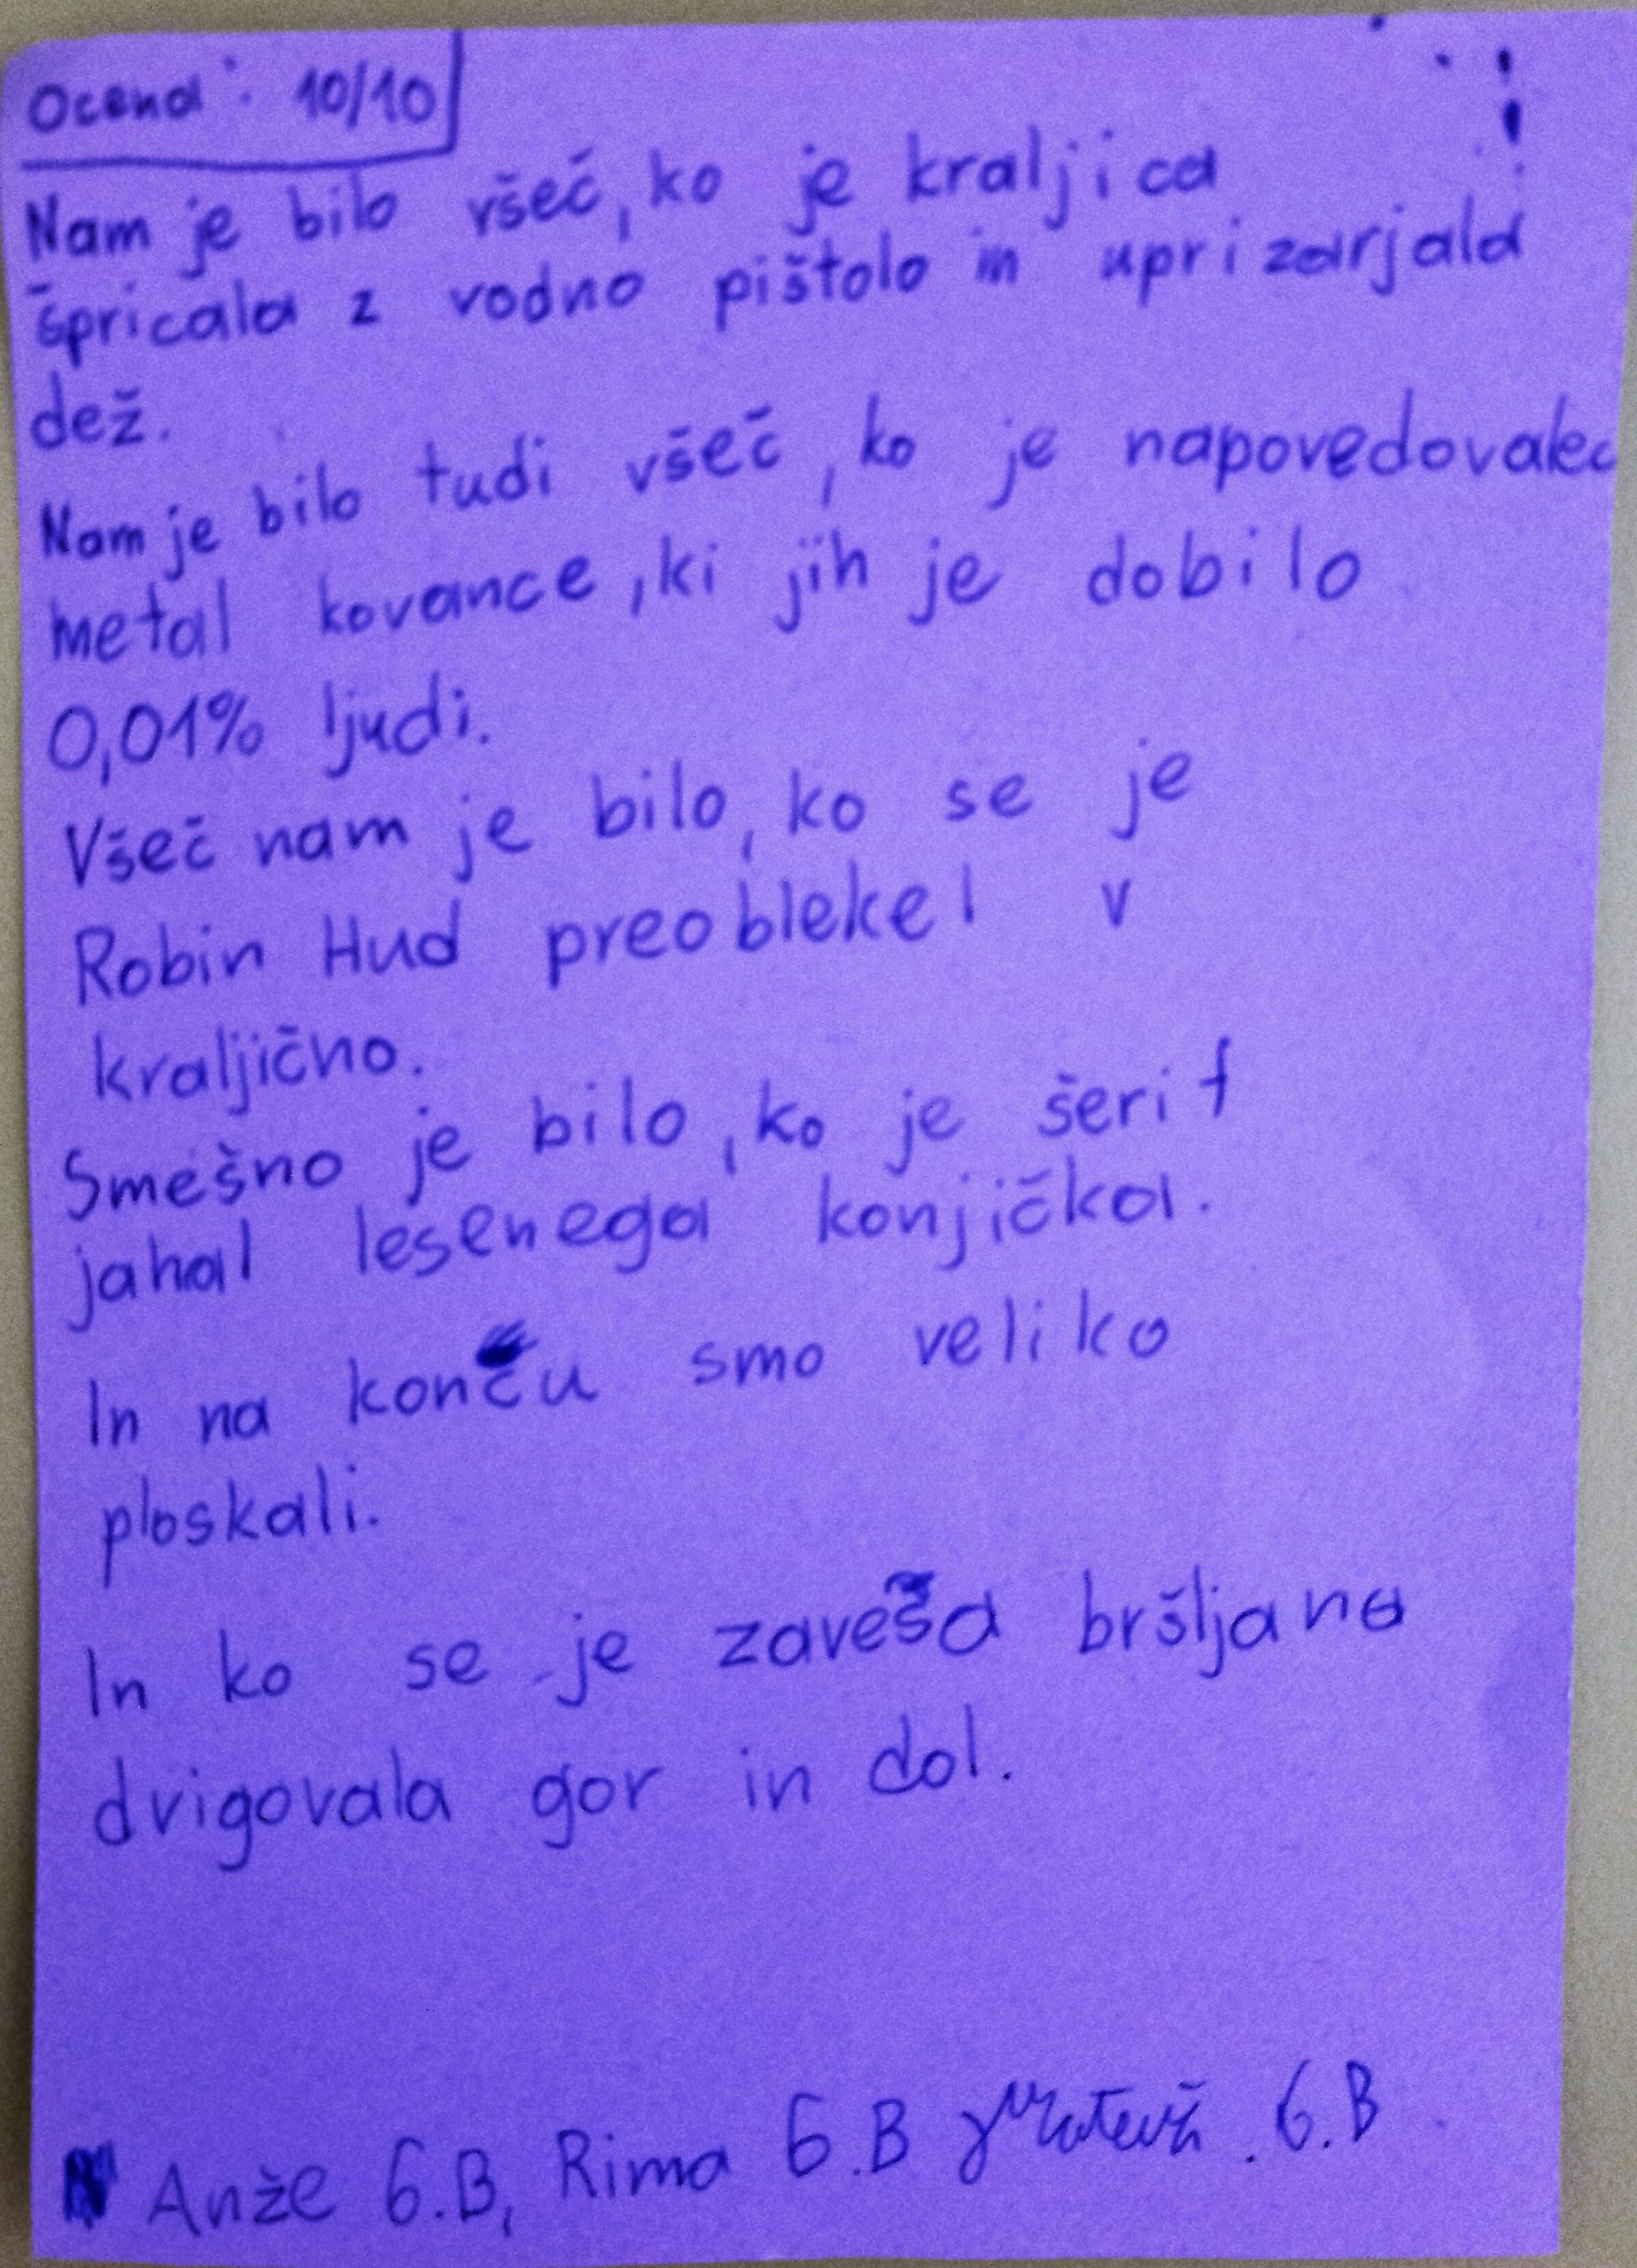 Ocena: 10/10
Nam je bilo všeč, ko je kraljica
špricala z vodno pištolo in uprizarjala
dež.
Nam je bilo tudi všeč, ko je napovedovalec
metal kovance, ki jih je dobilo
0,01% ljudi.
Všeč nam je bilo, ko se je
Robin Hud preoblekel v
kraljično.
Smešno je bilo, ko je šerif
jahal lesenega konjička.
In na koncu smo veliko
ploskali.
In ko se je zavesa bršljana
dvigovala gor in dol.
Anže 6.B, Rima 6.B Matevž. 6.B